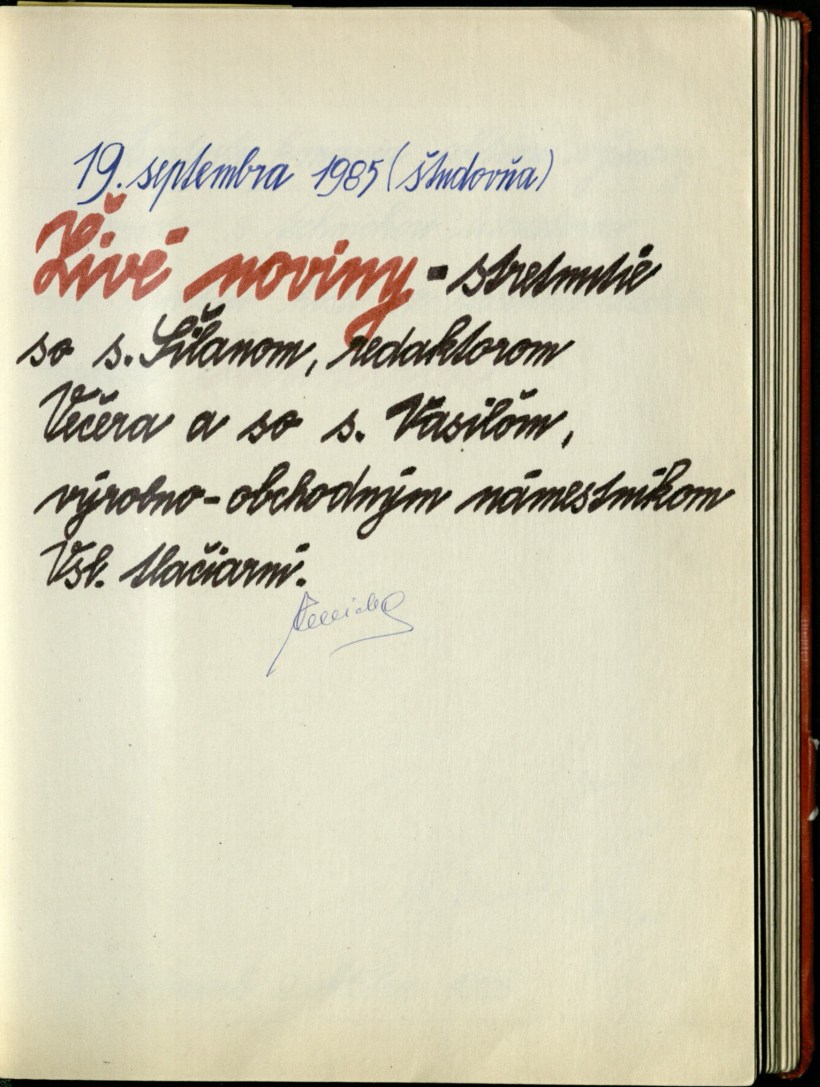 19. septembra 1985 (študovňa)
Živé noviny - stretnutie
so s. Šiťanom, redaktorom
Večera a so s. Vasiľom,
výrobno-obchodným námestníkom
Vsl. tlačiarní.